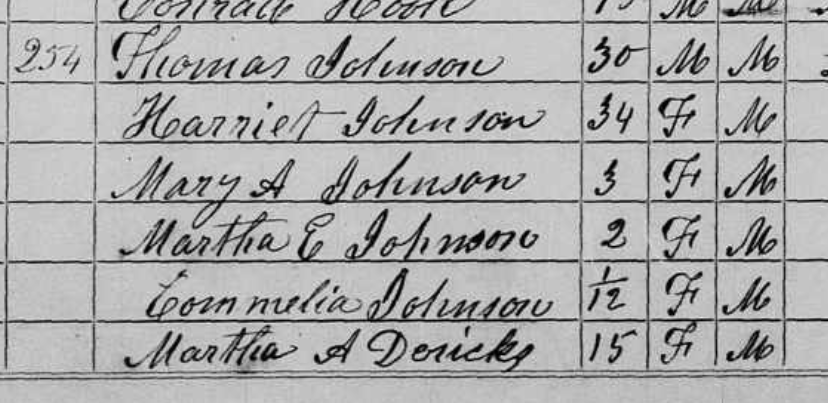 254 Thomas Johnson 30 M M
Harriet Johnson 34 F M
Mary A Johnson 3 F M
Martha E Johnson 2 F M
Commelia Johnson 1/12 F M
Martha A Dericks 15 F M